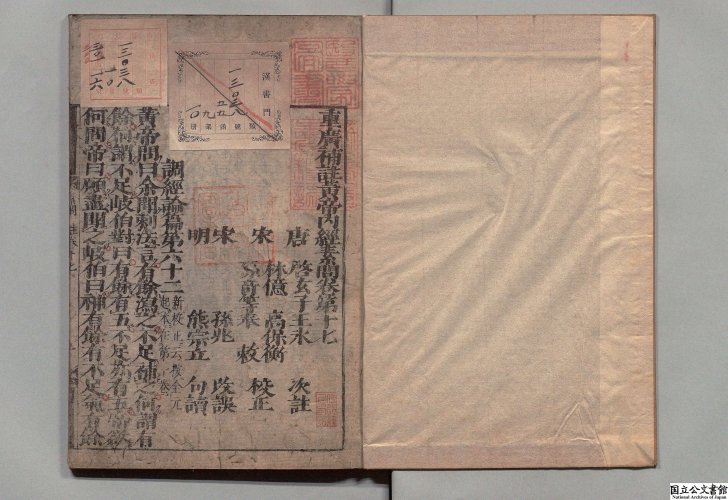 重廣補註黃帝內經素問卷第十七
唐 啓玄子王冰 次註
宋 林億 高保衡
孫奇等奉 敕 校正
宋 孫兆 改誤
明 熊宗立 句讀
調經論篇第六十二 新校正云按全元
起本在第一卷
黃帝問曰余聞刺法言有餘瀉之不足補之何謂有
餘何謂不足岐伯對曰有餘有五不足亦有五帝欲
何問帝曰願盡聞之岐伯曰神有餘有不足氣有餘
漢書門
国立公文書館
National Archives of Japan